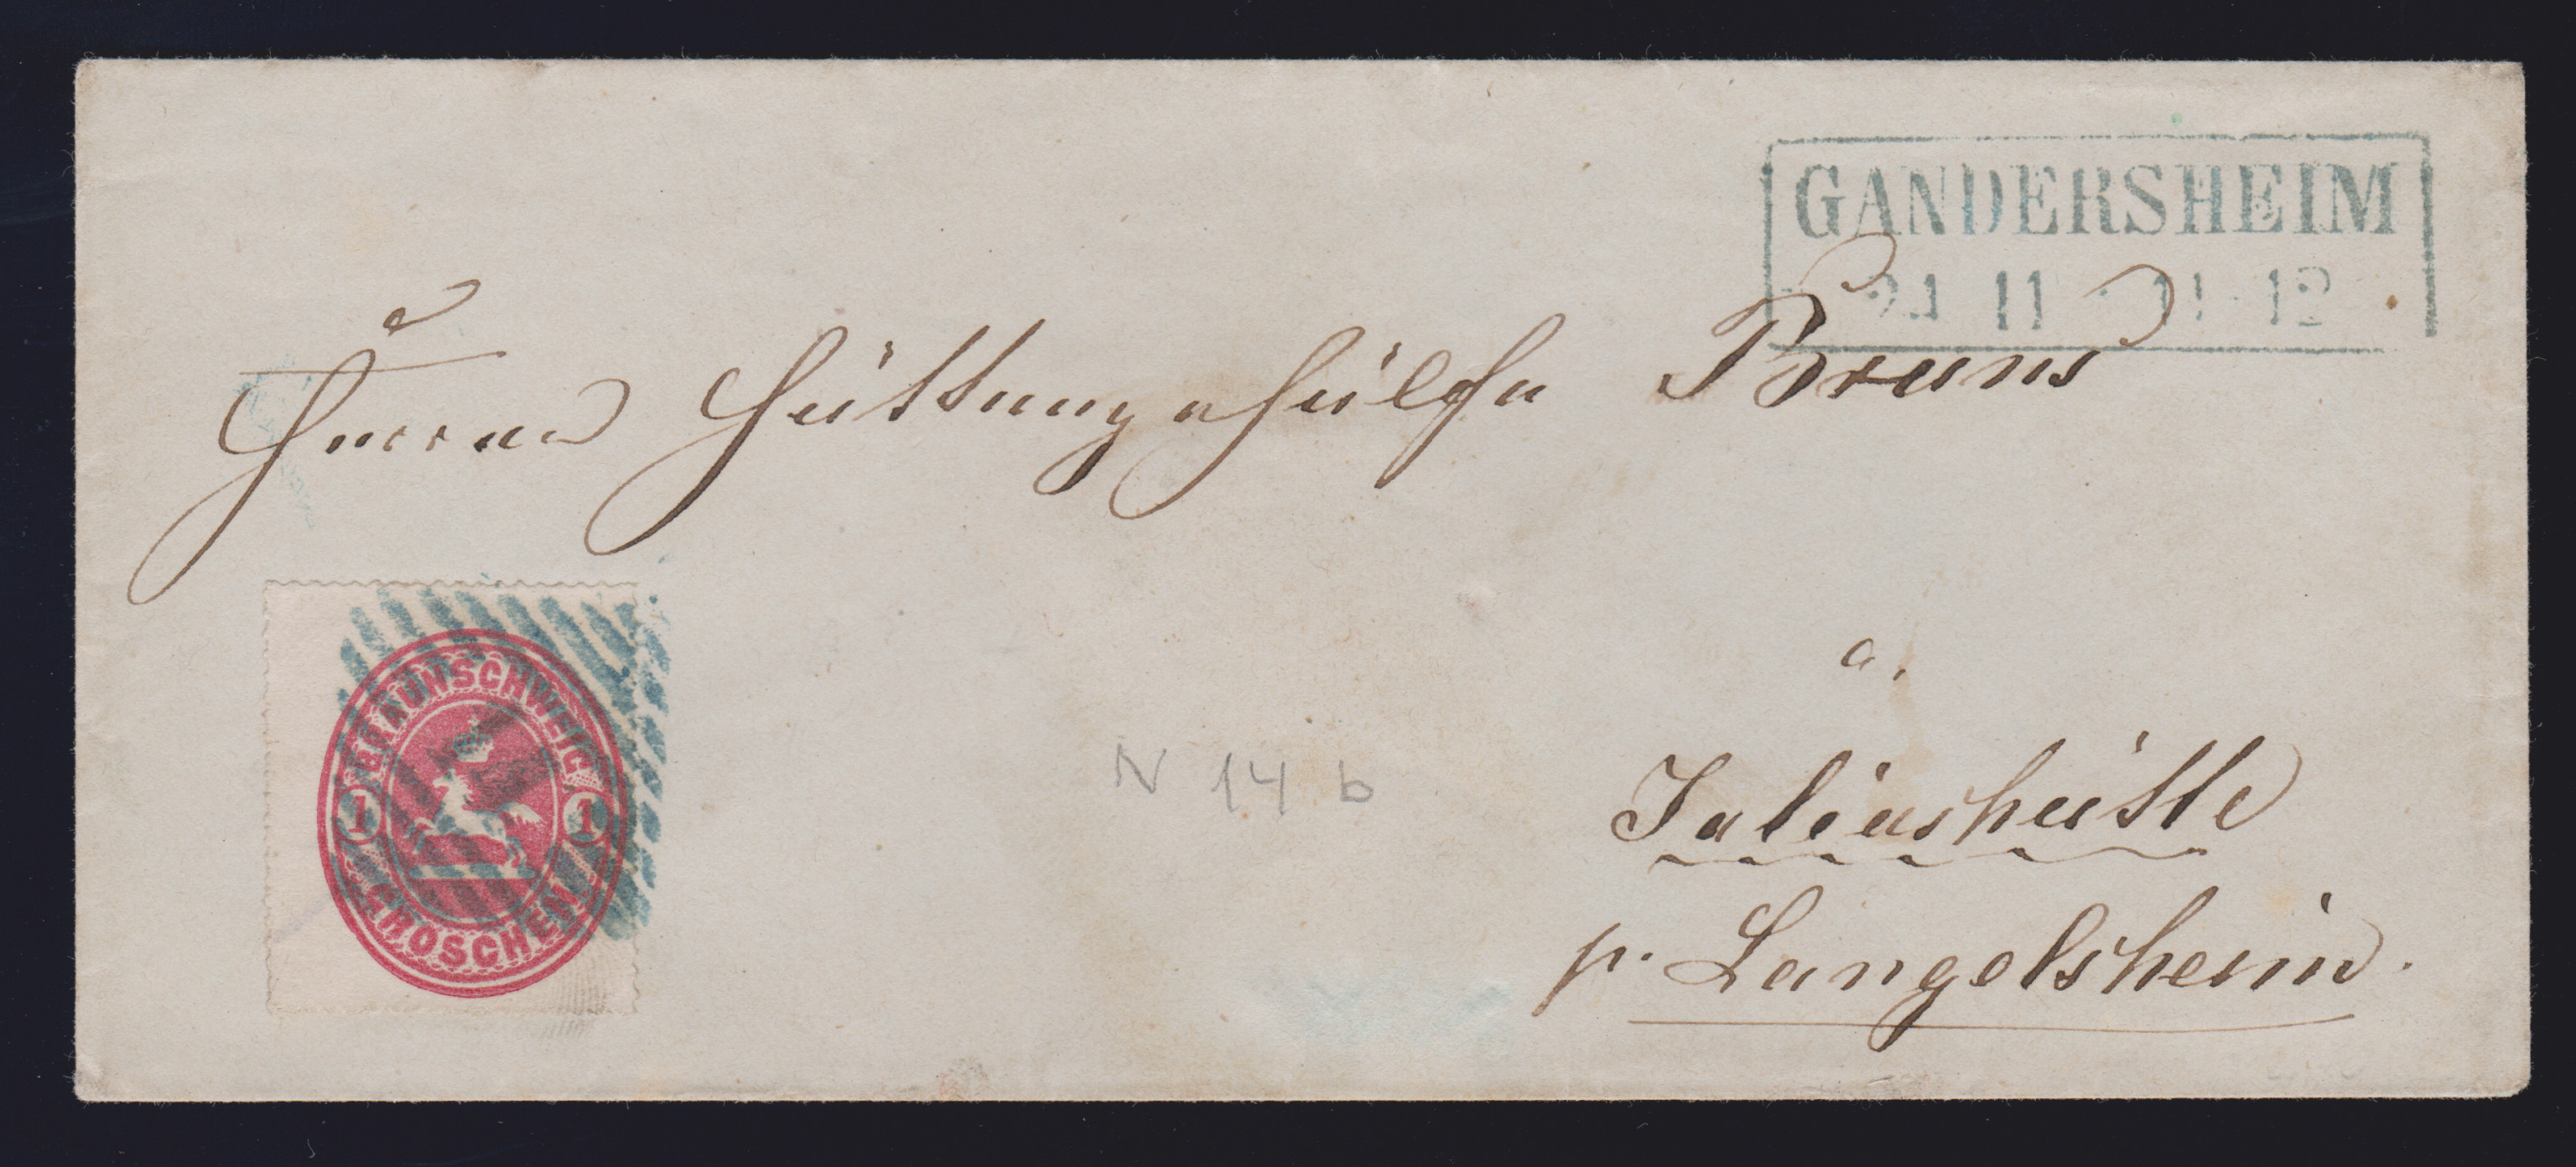 GANDERSHEIM
21 11 · 11-12
Herrn Hüttengehülfe Bruns
a.
Juliushütte
p. Langelsheim.
BRAUNSCHWEIG
1 1
GROSCHEN
N 14 b